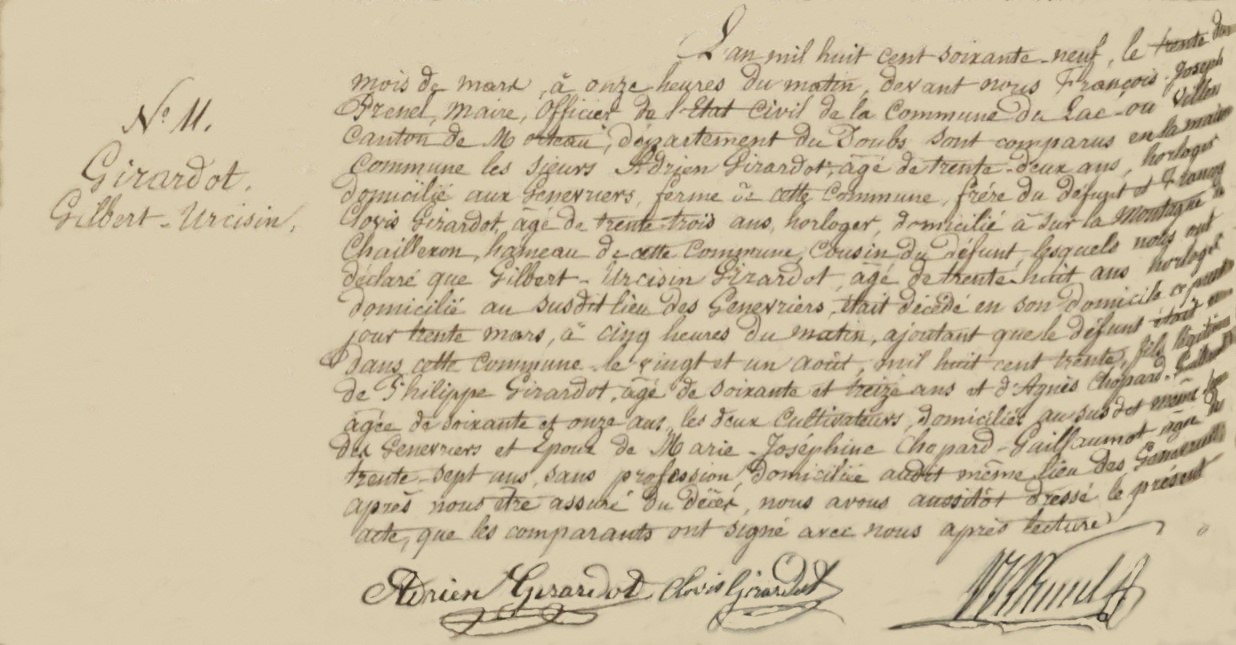 N° 11.
Girardot.
Gilbert-Urcisin.
L'an mil huit cent soixante-neuf, le trente du
mois de mars, à onze heures du matin, devant nous François-Joseph
Prenel, Maire, Officier de l'Etat Civil de la Commune du Lac-ou Villers
Canton de Morteau, département du Doubs sont comparus en la mairie
Commune les sieurs Adrien Girardot, âgé de trente-deux ans, horloger
domicilié aux Genevriers, ferme de cette Commune, frère du défunt et François
Clovis Girardot, agé de trente-trois ans, horloger, domicilié à sur la Montagne de
Chaillexon, hameau de cette Commune, cousin du défunt, lesquels nous ont
déclaré que Gilbert-Urcisin Girardot, âgé de trente-huit ans horloger
domicilié au susdit lieu des Genevriers, était décédé en son domicile ce
jour trente mars, à cinq heures du matin, ajoutant que le défunt était
dans cette Commune le vingt et un août, mil huit cent trente, fils légitime
de Philippe Girardot, âgé de soixante et treize ans et d'Agnès Chopard-
âgée de soixante et onze ans, les deux cultivateurs, domiciliés au susdit même lieu
des Genevriers et époux de Marie-Joséphine Chopard-Guillaumot âgée de
trente-sept ans, sans profession, domiciliée audit même lieu des Genevriers
après nous être assuré du décès, nous avons aussitôt dressé le présent
acte, que les comparants ont signé avec nous après lecture
Adrien Girardot Clovis Girardot